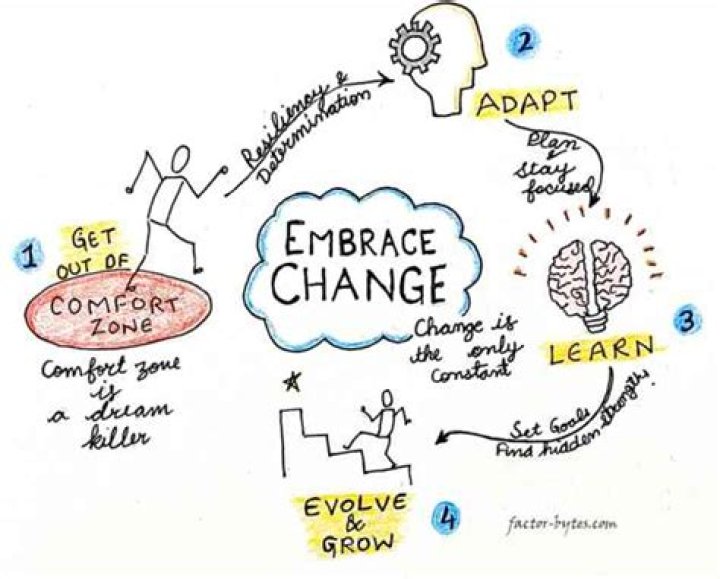 EMBRACE
CHANGE
Change is
the only
constant
1
GET
OUT OF
COMFORT
ZONE
Comfort zone
is
a dream
killer
Resiliency &
Determination
2
ADAPT
Plan
&
stay
focused
3
LEARN
Set Goals
Find hidden strengths
4
EVOLVE
&
GROW
factor-bytes.com